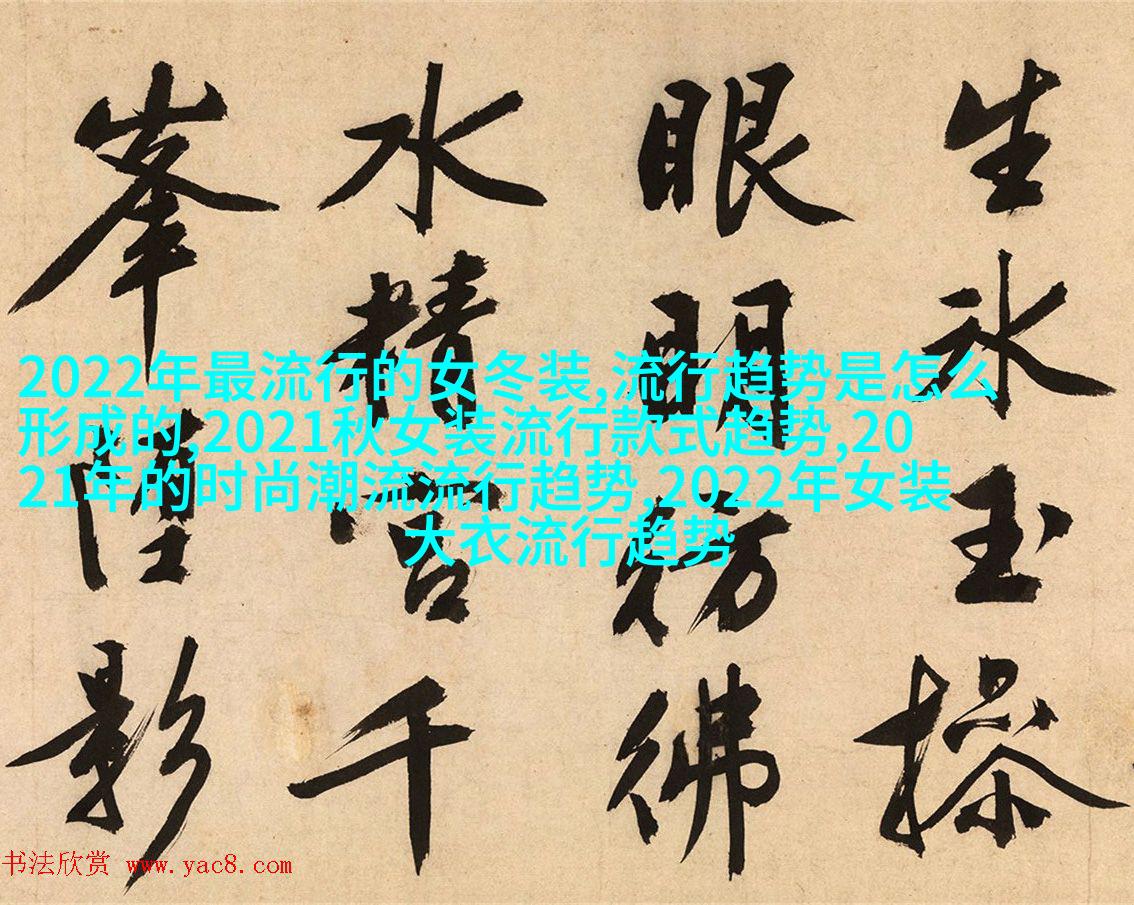 生氷玉操
眼明彷彿
水精宮千
峯影
2022年最流行的女冬装,流行趋势是怎么
形成的,2021秋女装流行款式趋势,20
21年的时尚潮流流行趋势,2022年女装
大衣流行趋势
书法欣赏 www.yac8.com